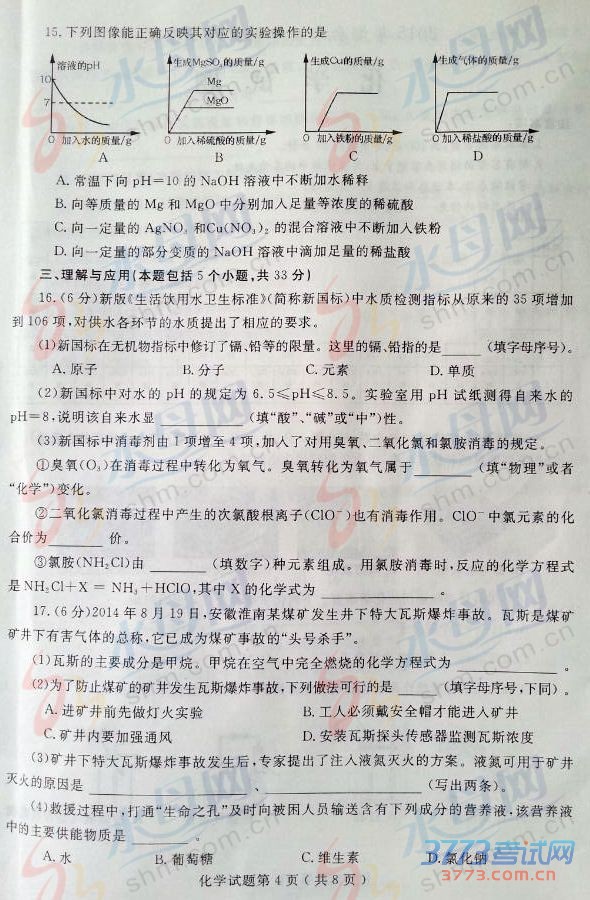 15.下列图像能正确反映其对应的实验操作的是
溶液的pH
10
7
0 加入水的质量/g
A
生成MgSO₄的质量/g
Mg
MgO
0 加入稀硫酸的质量/g
B
生成Cu的质量/g
0 加入铁粉的质量/g
C
生成气体的质量/g
0 加入稀盐酸的质量/g
D
A.常温下向 pH=10 的 NaOH 溶液中不断加水稀释
B.向等质量的 Mg 和 MgO 中分别加入足量等浓度的稀硫酸
C.向一定量的 AgNO₃ 和Cu(NO₃)₂ 的混合溶液中不断加入铁粉
D.向一定量的部分变质的 NaOH 溶液中滴加足量的稀盐酸
三、理解与应用(本题包括 5 个小题,共 33 分)
16.(6 分)新版《生活饮用水卫生标准》(简称新国标)中水质检测指标从原来的 35 项增加
到 106 项,对供水各环节的水质提出了相应的要求。
(1)新国标在无机物指标中修订了镉、铅等的限量。这里的镉、铅指的是______(填字母序号)。
A.原子 B.分子 C.元素 D.单质
(2)新国标中对水的 pH 的规定为 6.5≤pH≤8.5。实验室用 pH 试纸测得自来水的
pH=8,说明该自来水显__________(填“酸”、“碱”或“中”)性。
(3)新国标中消毒剂由 1 项增至 4 项,加入了对用臭氧、二氧化氯和氯胺消毒的规定。
①臭氧(O₃)在消毒过程中转化为氧气。臭氧转化为氧气属于______(填“物理”或者
“化学”)变化。
②二氧化氯消毒过程中产生的次氯酸根离子(ClO⁻)也有消毒作用。ClO⁻ 中氯元素的化
合价为______价。
③氯胺(NH₂Cl)由______(填数字)种元素组成。用氯胺消毒时,反应的化学方程式
是 NH₂Cl+X = NH₃+HClO,其中 X 的化学式为____________。
17.(6 分)2014 年 8 月 19 日,安徽淮南某煤矿发生井下特大瓦斯爆炸事故。瓦斯是煤矿
矿井下有害气体的总称,它已成为煤矿事故的“头号杀手”。
(1)瓦斯的主要成分是甲烷。甲烷在空气中完全燃烧的化学方程式为____________。
(2)为了防止煤矿的矿井发生瓦斯爆炸事故,下列做法可行的是____(填字母序号,下同)。
A.进矿井前先做灯火实验 B.工人必须戴安全帽才能进入矿井
C.矿井内要加强通风 D.安装瓦斯探头传感器监测瓦斯浓度
(3)矿井下特大瓦斯爆炸发生后,专家提出了注入液氮灭火的方案。液氮可用于矿井
灭火的原因是____________________、____________________(写出两条)。
(4)救援过程中,打通“生命之孔”及时向被困人员输送含有下列成分的营养液,该营养液
中的主要供能物质是________。
A.水 B.葡萄糖 C.维生素 D.氯化钠
化学试题第 4 页(共 8 页)
水母网
shm.com.cn
3773考试网
3773.com.cn